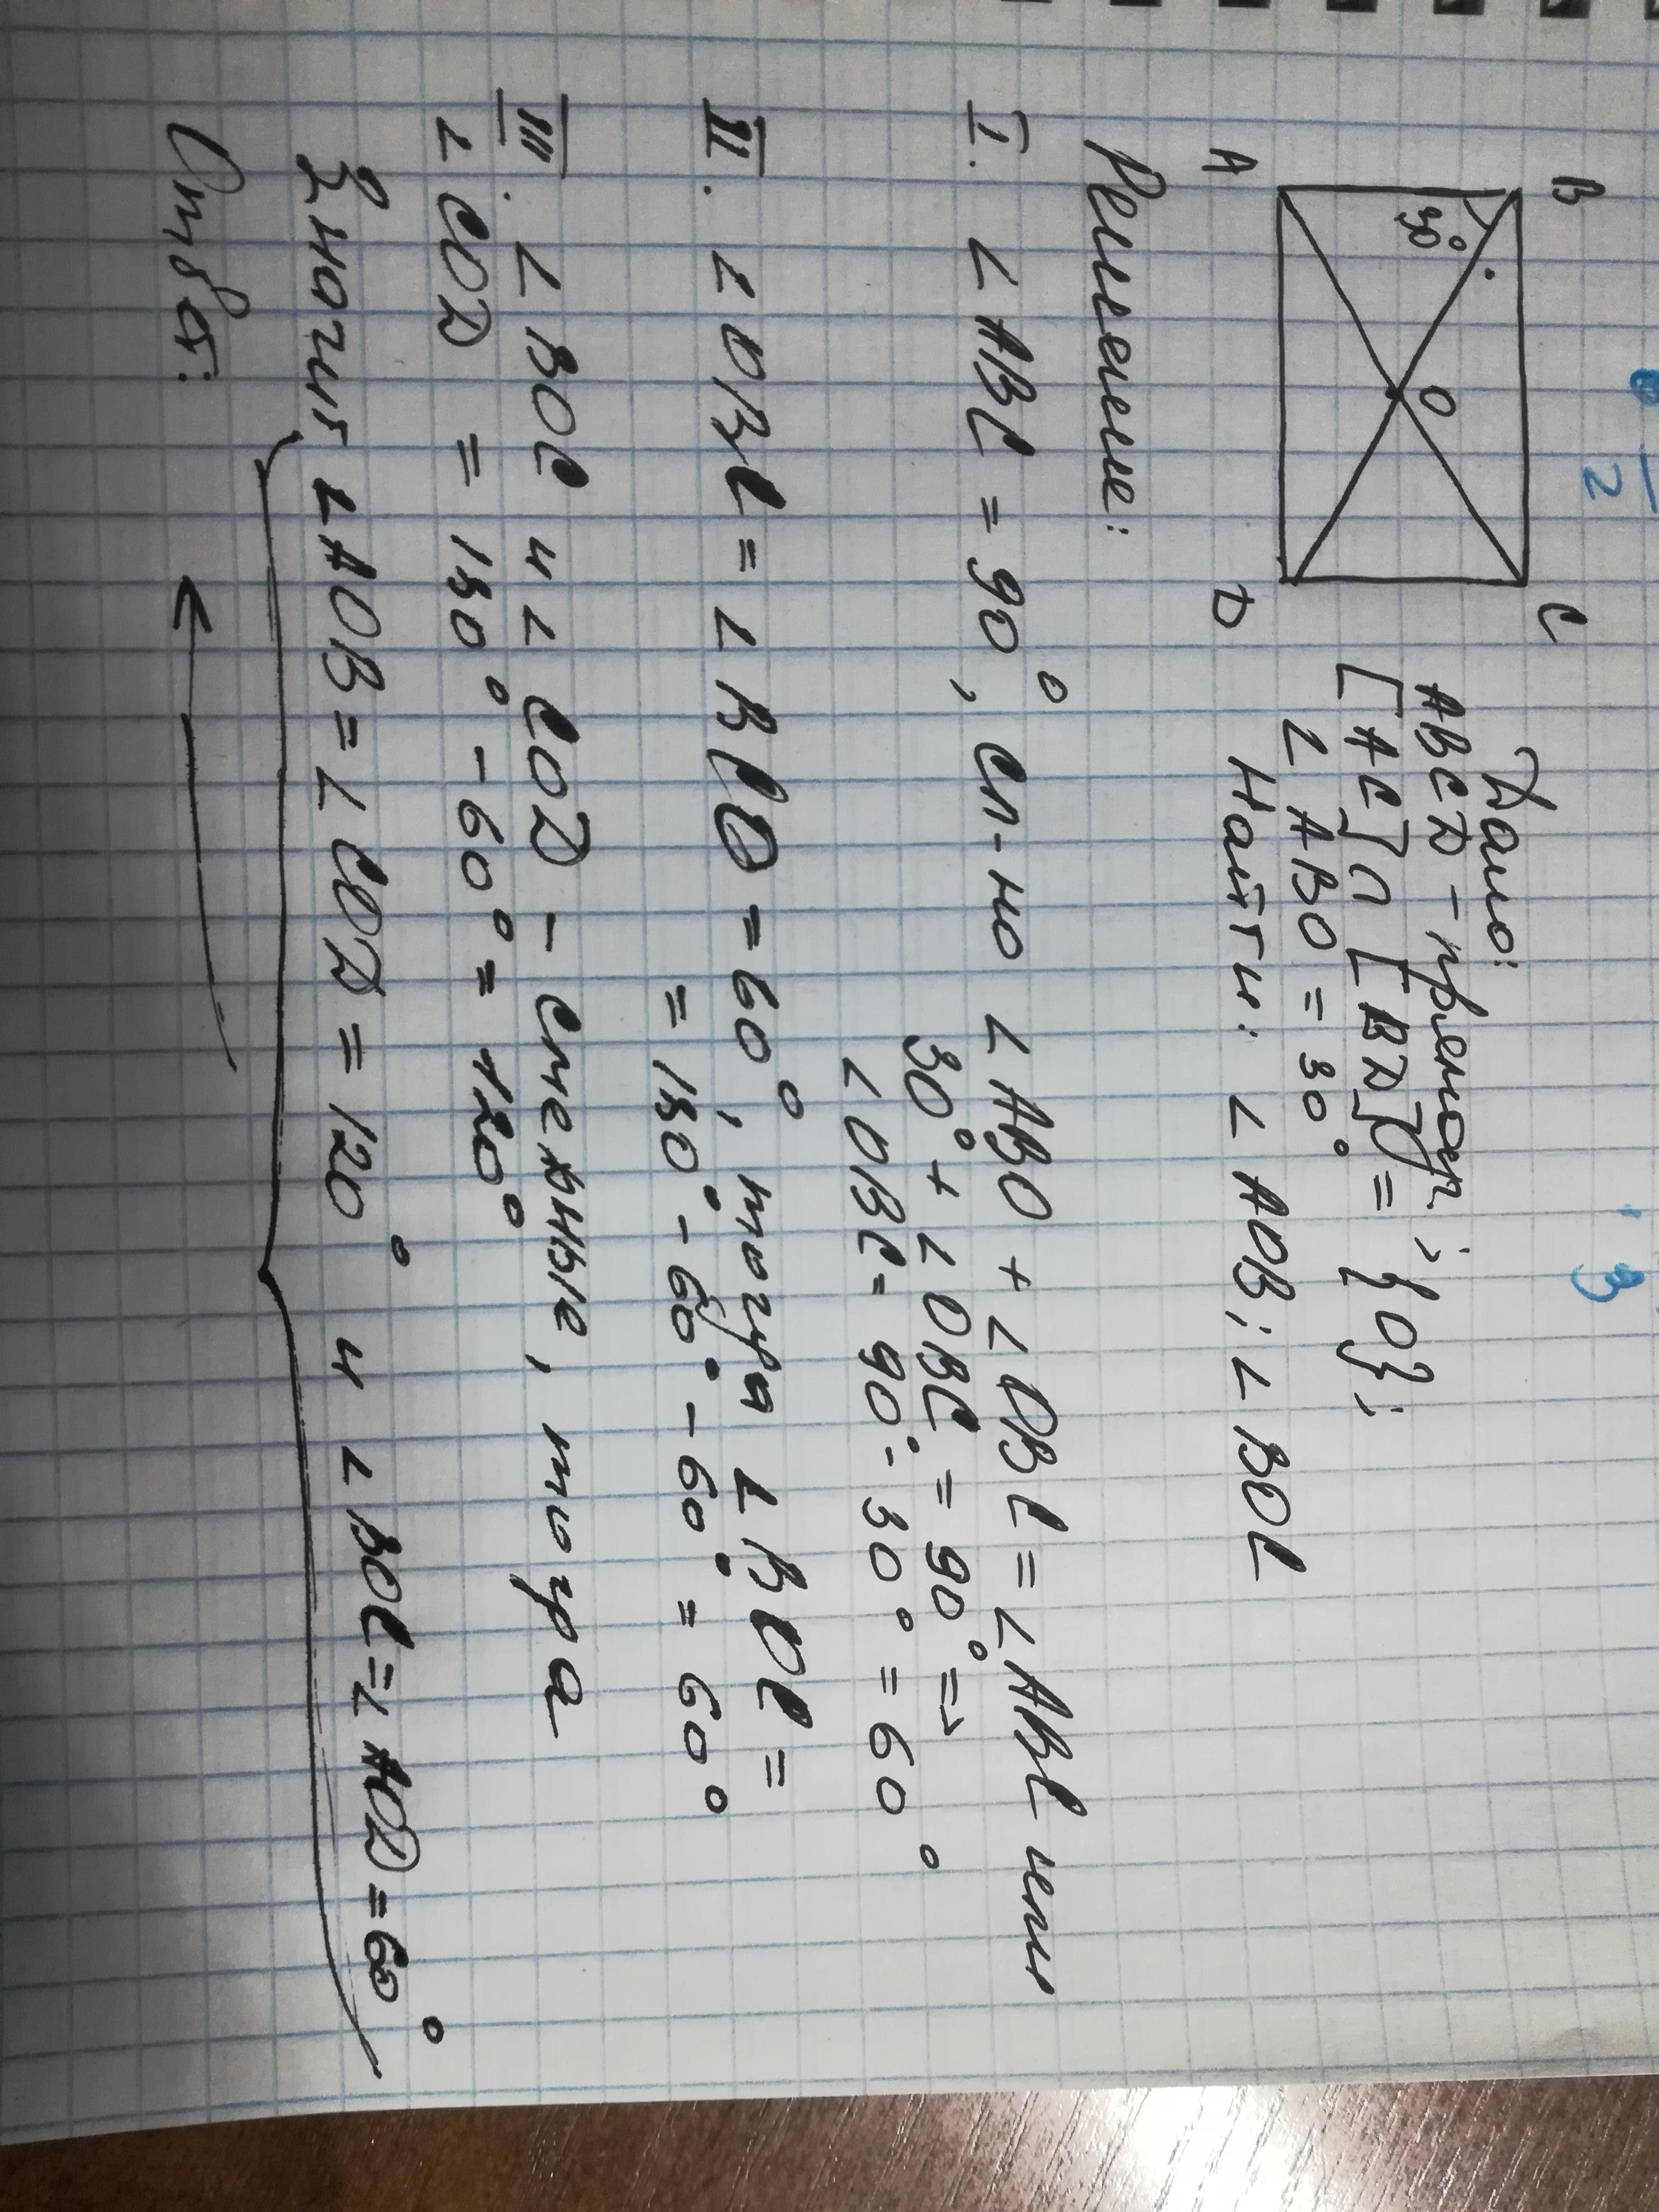 2
3
B
C
30°
O
A
D
Дано:
ABCD - прямоуг.;
[AC] ∩ [BD] = {O};
∠ ABO = 30°
Найти: ∠ AOB; ∠ BOC
Решение:
I. ∠ ABC = 90°, сл-но ∠ ABO + ∠ OBC = ∠ ABC или
30° + ∠ OBC = 90° =>
∠ OBC = 90° - 30° = 60°
II. ∠ OBC = ∠ BCO = 60°, тогда ∠ BOC =
= 180° - 60° - 60° = 60°
III. ∠ BOC и ∠ COD - смежные, тогда
∠ COD = 180° - 60° = 120°
Значит ∠ AOB = ∠ COD = 120° и ∠ BOC = ∠ AOD = 60°
Ответ: